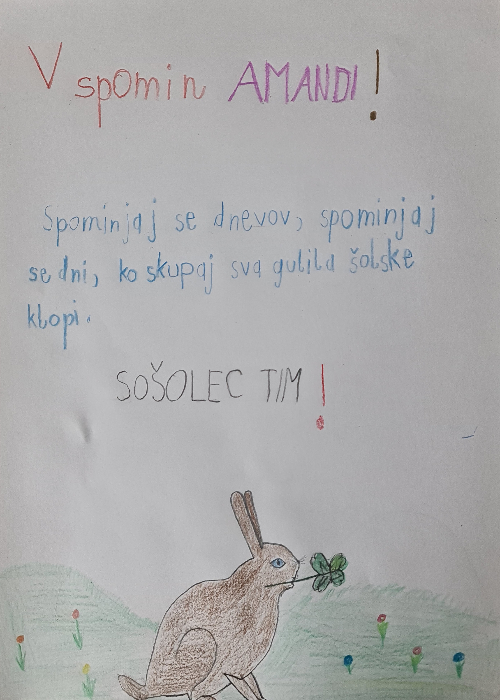 V spomin AMANDI!
Spominjaj se dnevov, spominjaj
se dni, ko skupaj sva gulila šolske
klopi.
SOŠOLEC TIM!